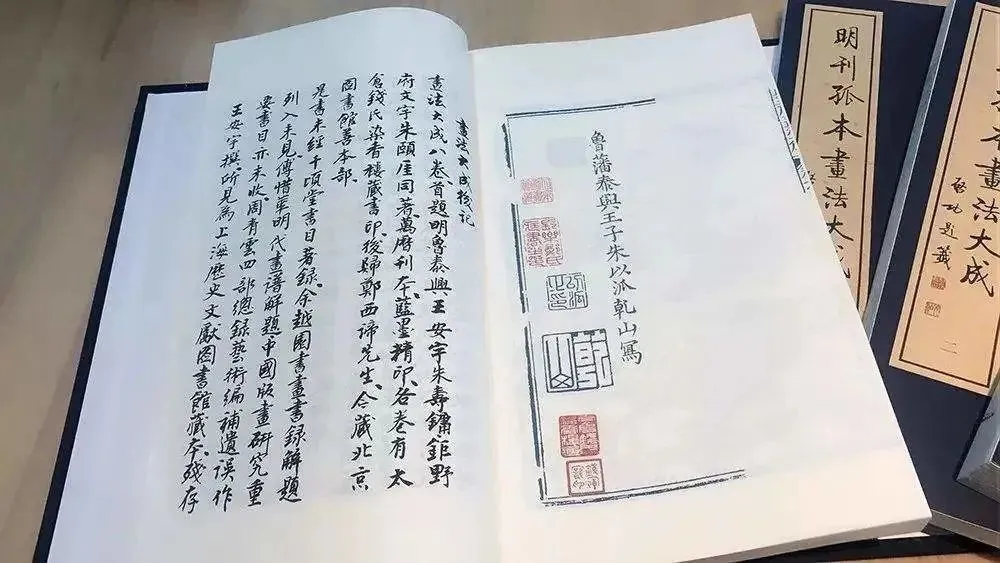 畫法大成
畫法大成八卷首題明魯泰興王安宇朱壽鏞鉅野
府文宇朱頤厓同著萬曆刊本藍墨精印各卷有太
倉錢氏染香樓藏書印後歸鄭西諦先生今藏北京
圖書館善本部
是書未經千頃堂書目著録余越園書畫書録解題
列入未見傅惜華明代畫譜解題中國版畫研究重
要書目亦未收周青雲四部總録藝術編補遺誤作
王安宇撰所見為上海歷史文獻图書館藏本殘存
魯藩泰興王子朱以派乾山寫
乾山
明刊孤本畫法大成
本畫法大成
啓功題籤
二